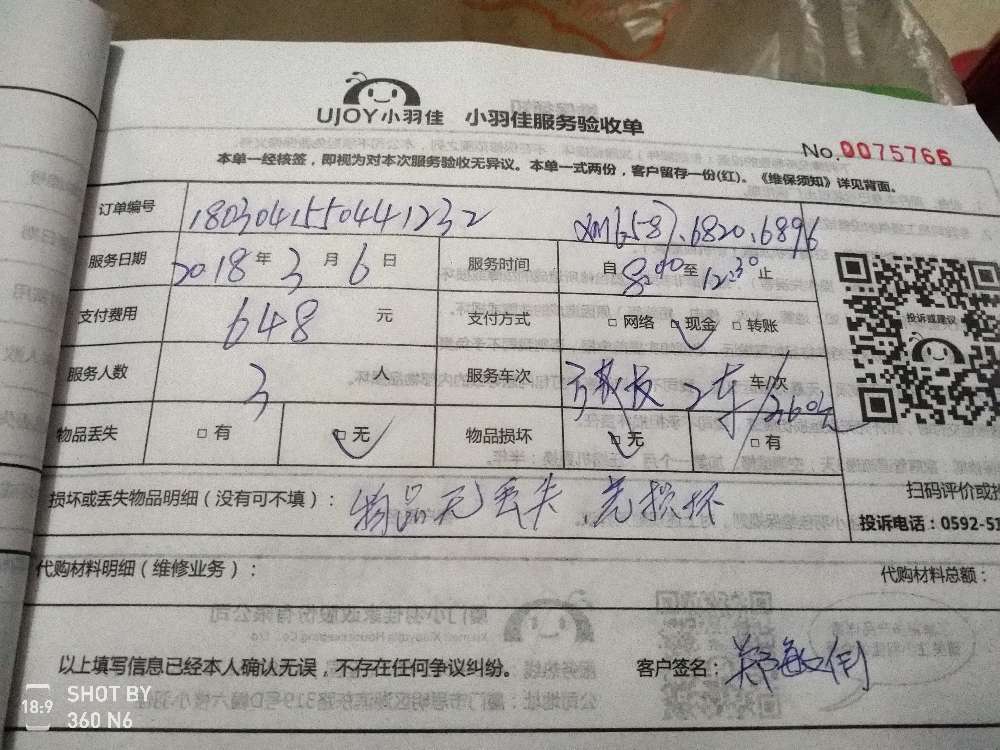 UJOY小羽佳 小羽佳服务验收单
No.0075766
本单一经核签，即视为对本次服务验收无异议。本单一式两份，客户留存一份(红)。《维保须知》详见背面。
订单编号 1803041550441232 6587、6820、6896
服务日期 2018年3月6日 服务时间 自8:00至12:30止
支付费用 648元 支付方式 □网络 □现金 □转账
投诉或建议
服务人数 3人 服务车次 2车 车/次
物品丢失 □有 □无 物品损坏 □无 □有
360元
扫码评价或投
损坏或丢失物品明细（没有可不填）： 物品无丢失，无损坏
投诉电话：0592-5
代购材料明细（维修业务）：
代购材料总额：
以上填写信息已经本人确认无误，不存在任何争议纠纷。 客户签名： 郑敏
SHOT BY
18:9
360 N6